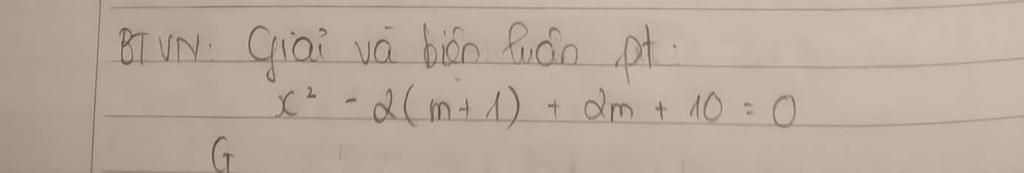 BTVN: Giải và biện luận pt:
x² - 2(m+1) + 2m + 10 = 0
G